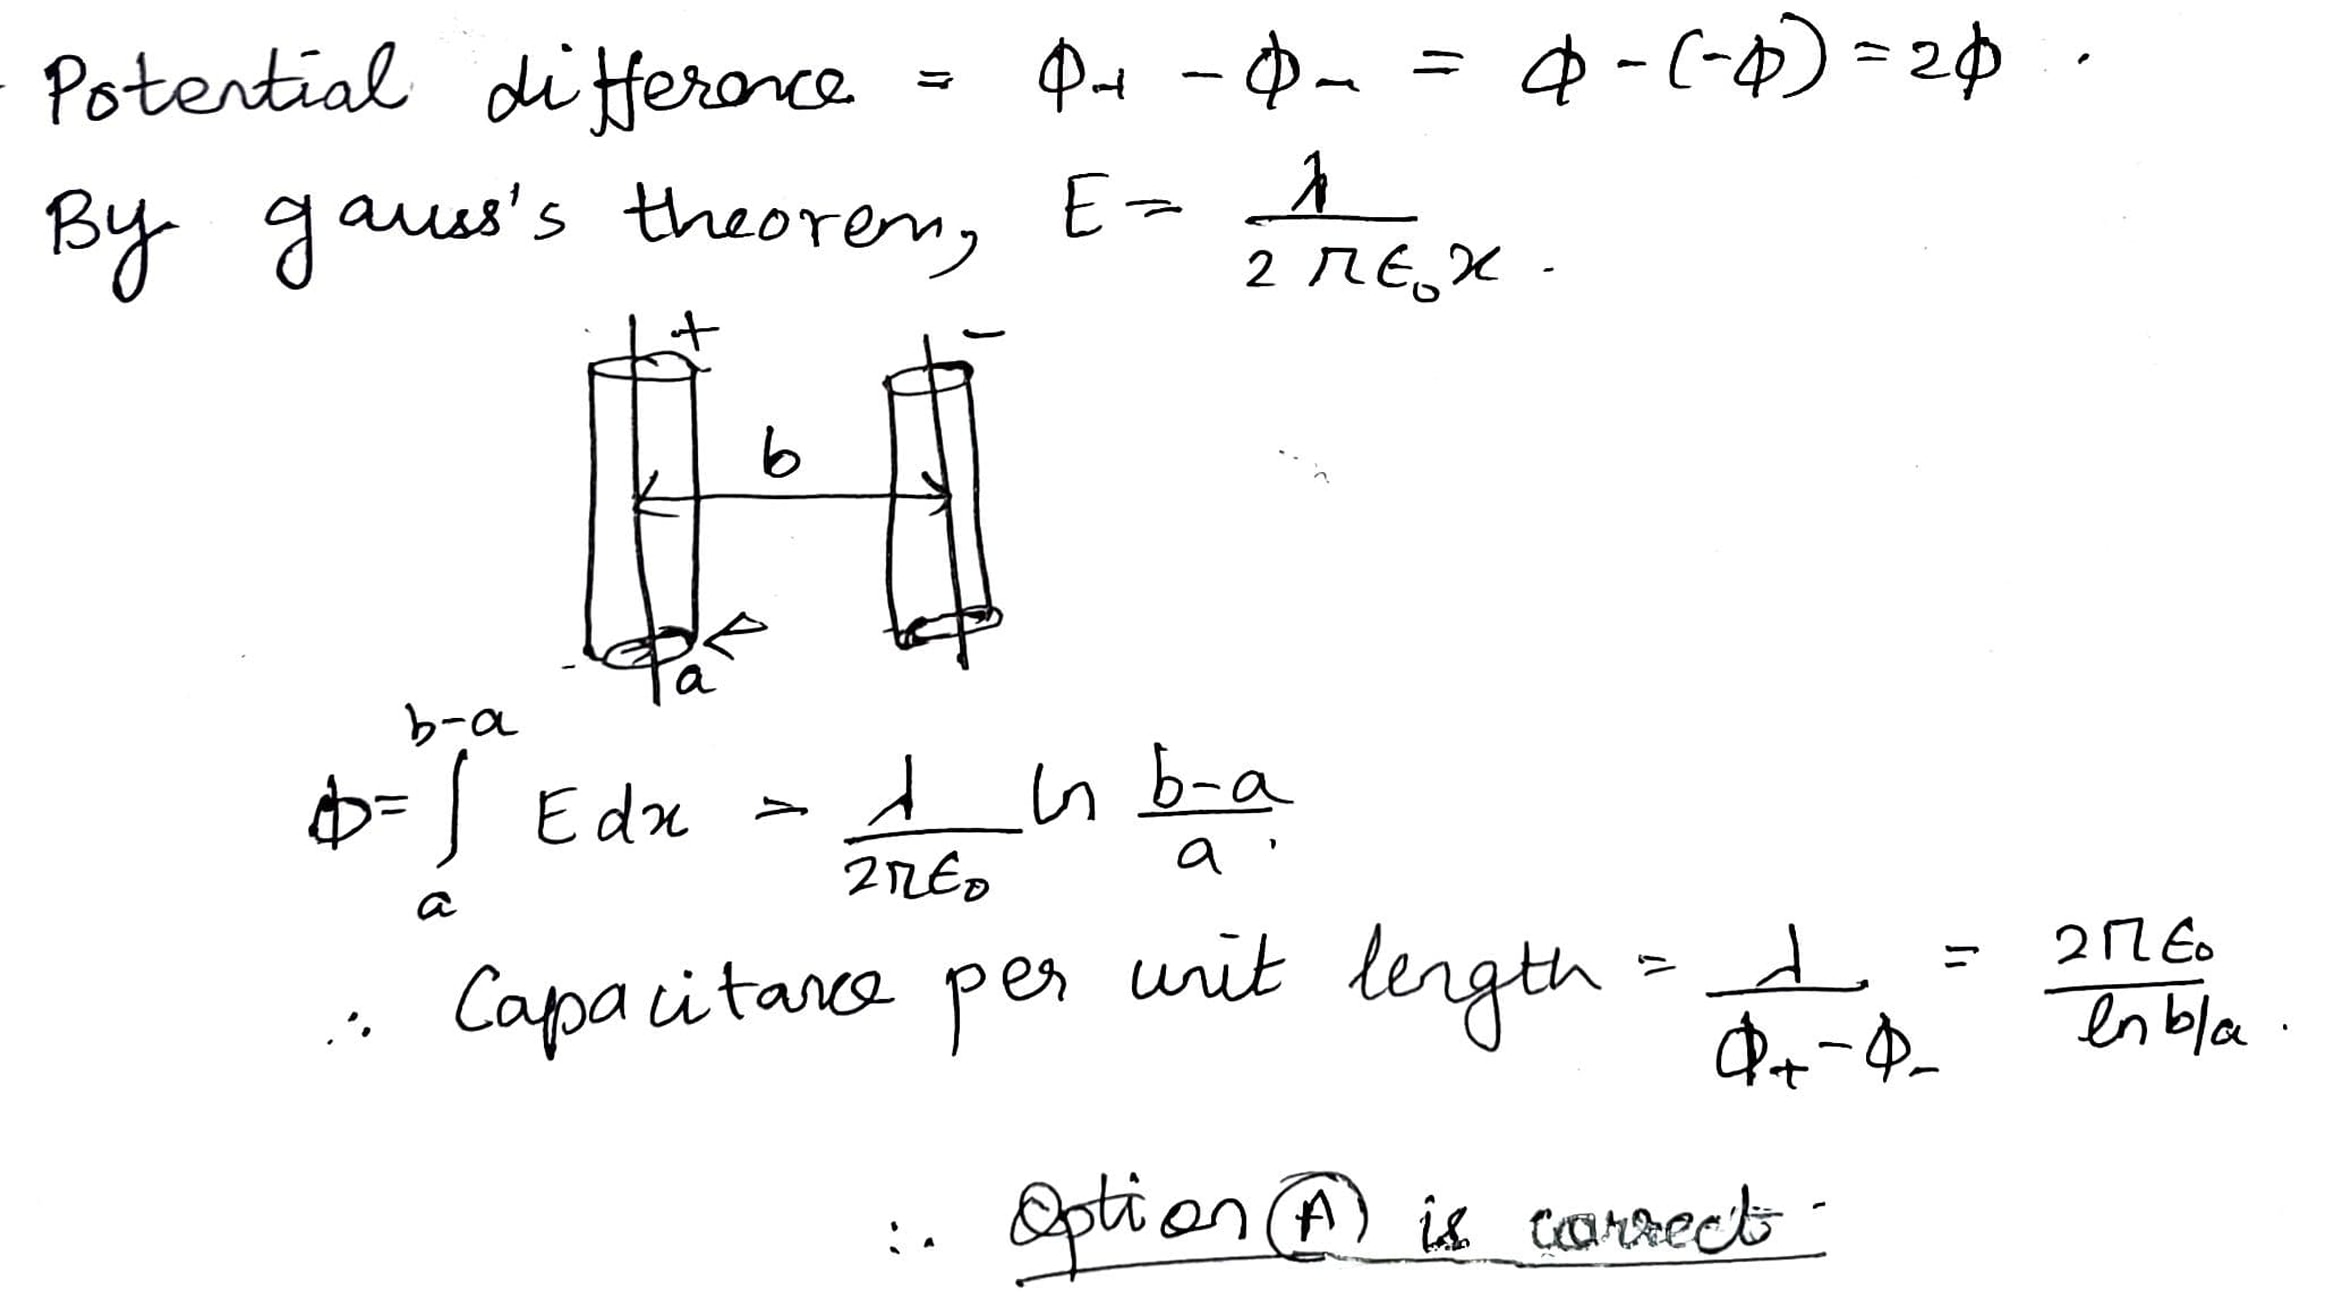 Potential difference = Φ₊ - Φ₋ = Φ - (-Φ) = 2Φ .
By gauss's theorem, E = λ / 2πε₀x .
+ -
b
a
Φ = ∫ₐᵇ⁻ᵃ E dx = λ / 2πε₀ ln b-a / a .
∴ Capacitance per unit length = λ / Φ₊ - Φ₋ = 2πε₀ / ln b/a .
∴ Option (A) is correct.